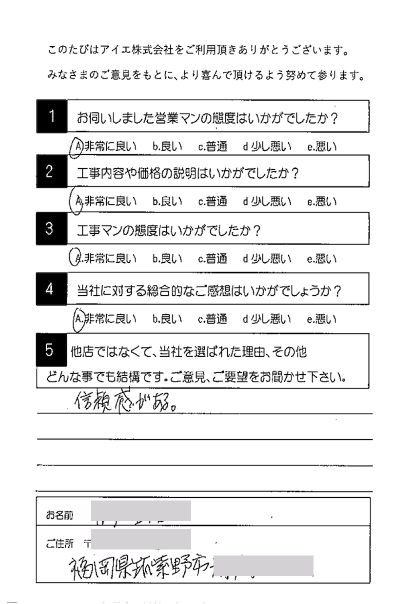 このたびはアイエ株式会社をご利用頂きありがとうございます。
みなさまのご意見をもとに、より喜んで頂けるよう努めて参ります。
1 お伺いしました営業マンの態度はいかがでしたか？
A.非常に良い b.良い c.普通 d少し悪い e.悪い
2 工事内容や価格の説明はいかがでしたか？
A.非常に良い b.良い c.普通 d少し悪い e.悪い
3 工事マンの態度はいかがでしたか？
A.非常に良い b.良い c.普通 d少し悪い e.悪い
4 当社に対する総合的なご感想はいかがでしょうか？
A.非常に良い b.良い c.普通 d少し悪い e.悪い
5 他店ではなくて、当社を選ばれた理由、その他
どんな事でも結構です。ご意見、ご要望をお聞かせ下さい。
信頼感がある。
お名前
ご住所 〒
福岡県筑紫野市